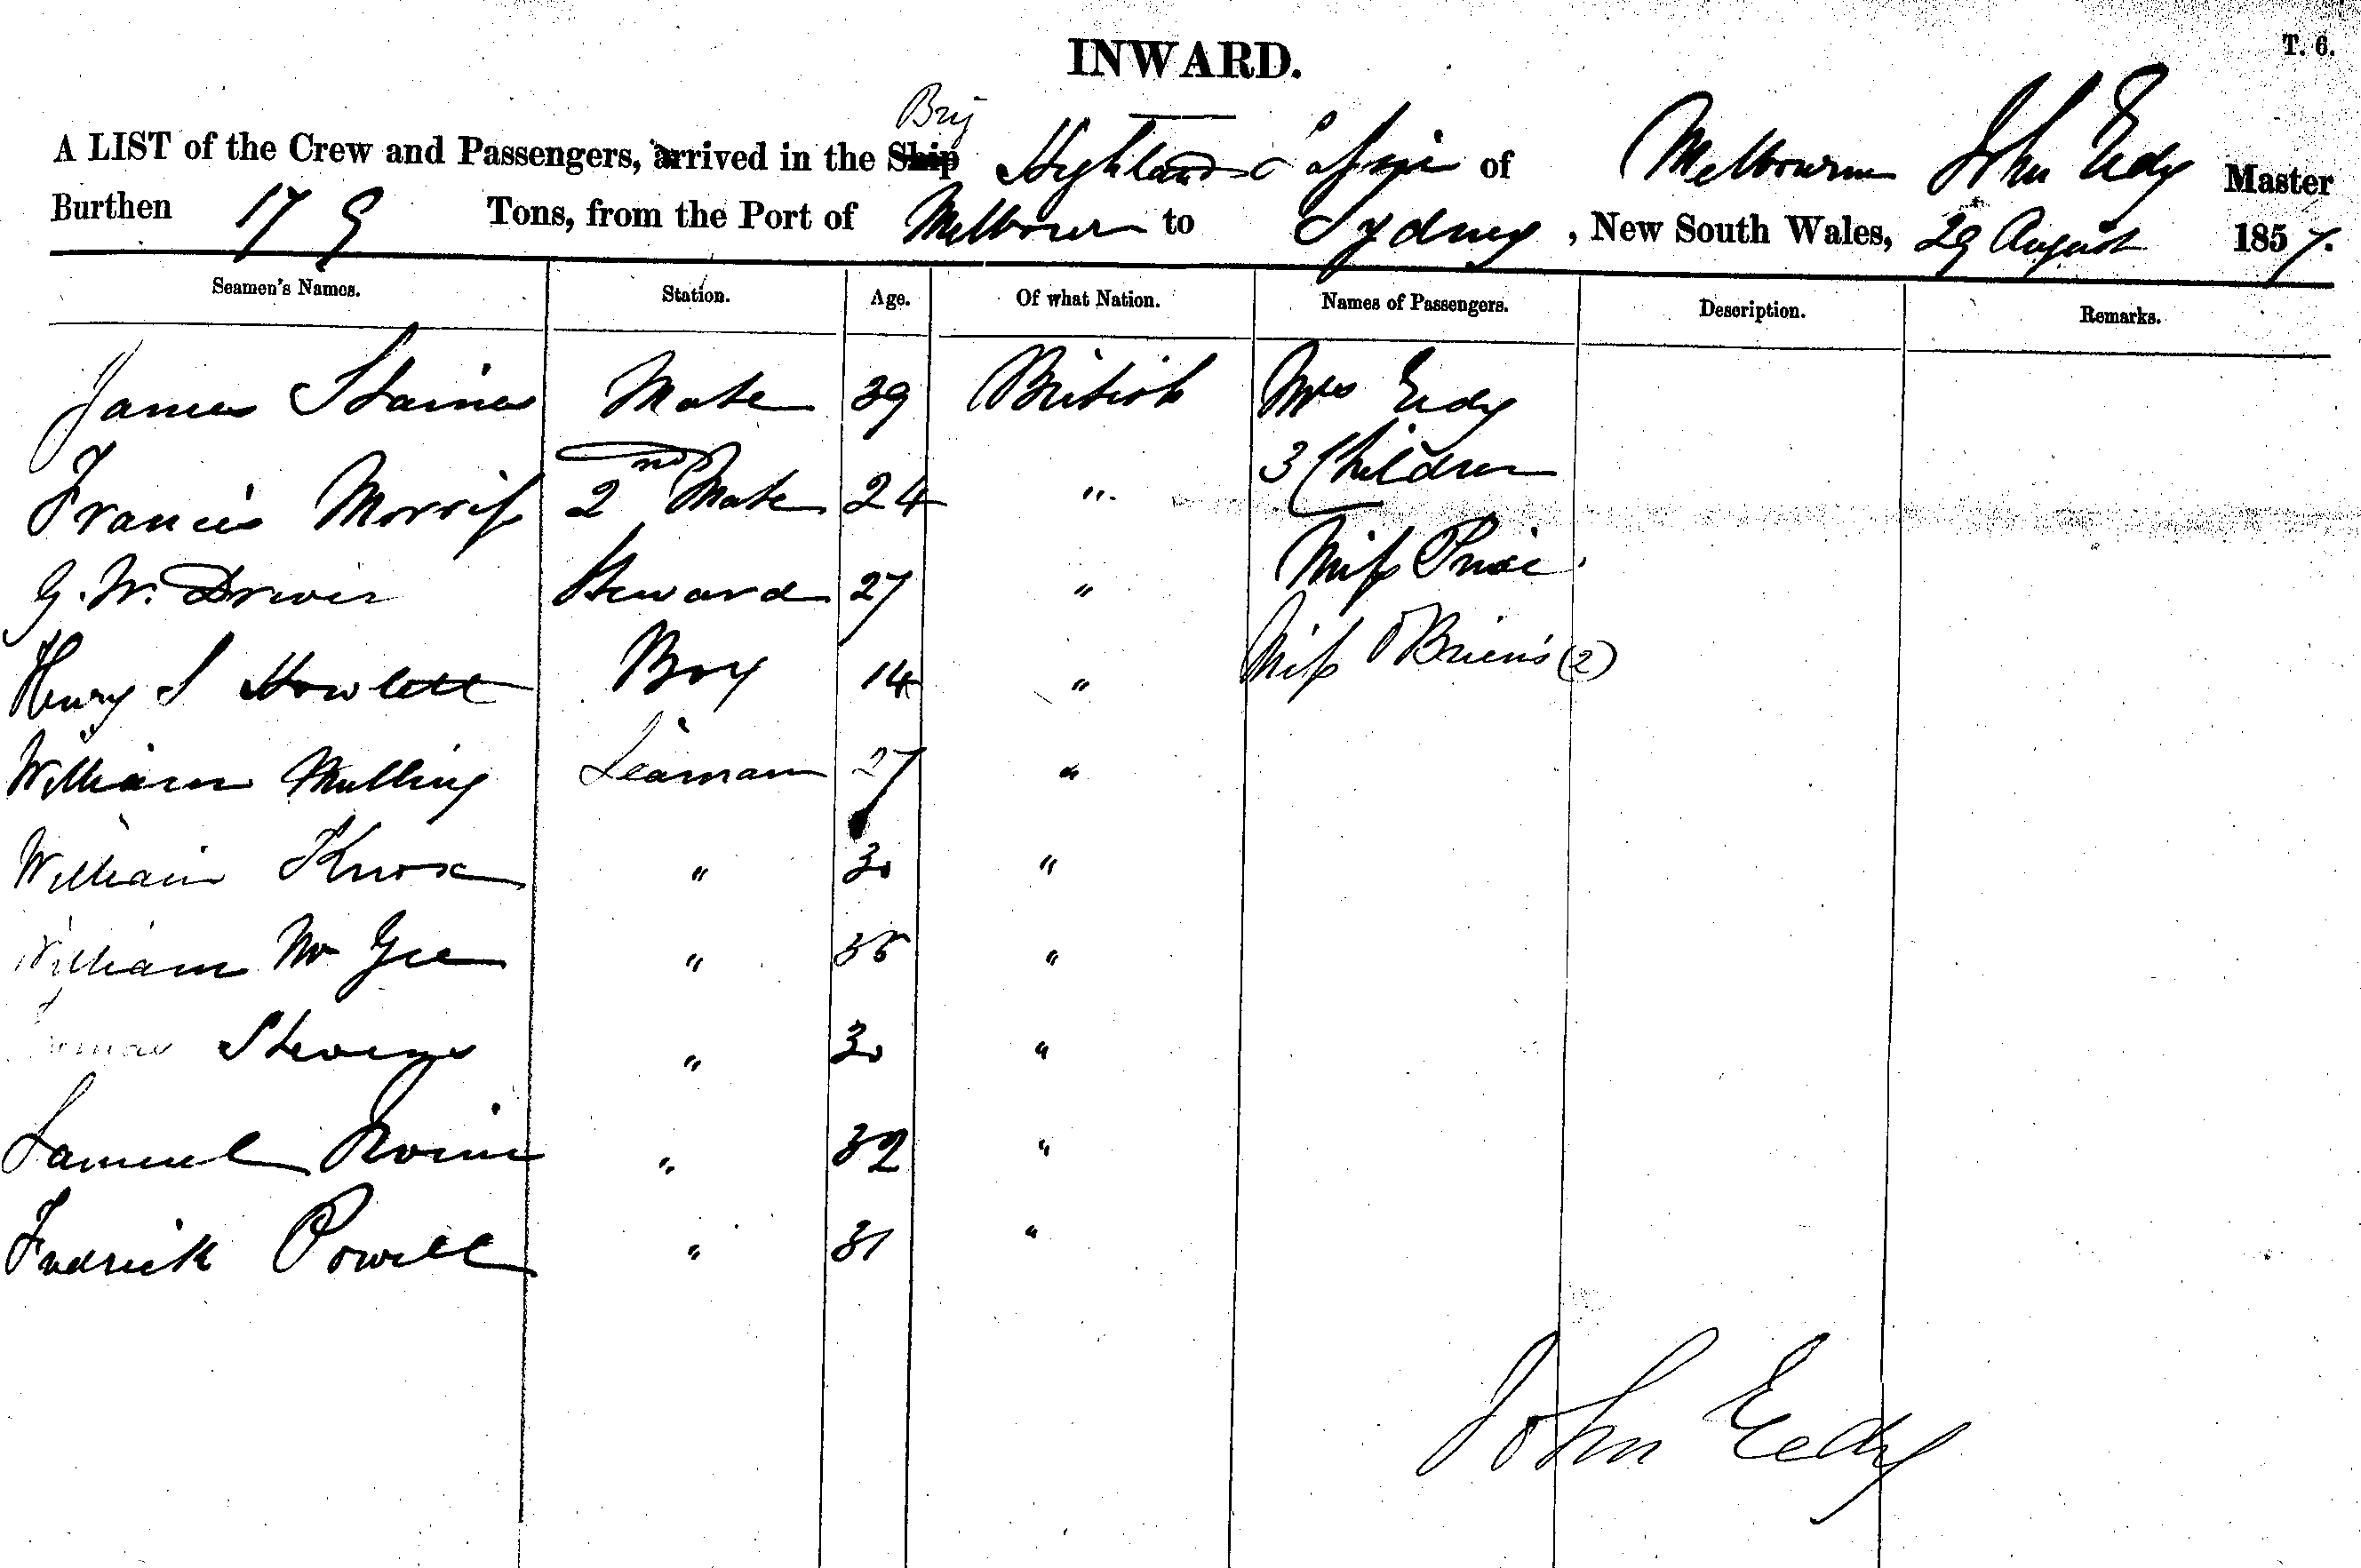 INWARD.
T. 6.
Brig
A LIST of the Crew and Passengers, arrived in the Ship Highland of Melbourne John Eedy Master
Burthen 179 Tons, from the Port of Melbourne to Sydney, New South Wales, 29 August 1857.
Seamen's Names. Station. Age. Of what Nation. Names of Passengers. Description. Remarks.
James Staines Mate 39 British Mrs Eedy
3 Children
Francis Morris 2nd Mate 24 "
Miss Price
G. W. Steward 27 "
Henry S Howlett Boy 14 " Miss O'Brien's (2)
William Mulling Seaman 27 "
William Knox " 30 "
William Mc Gee " 35 "
Stevens " 30 "
Samuel " 32 "
Fredrick Powell " 31 "
John Eedy